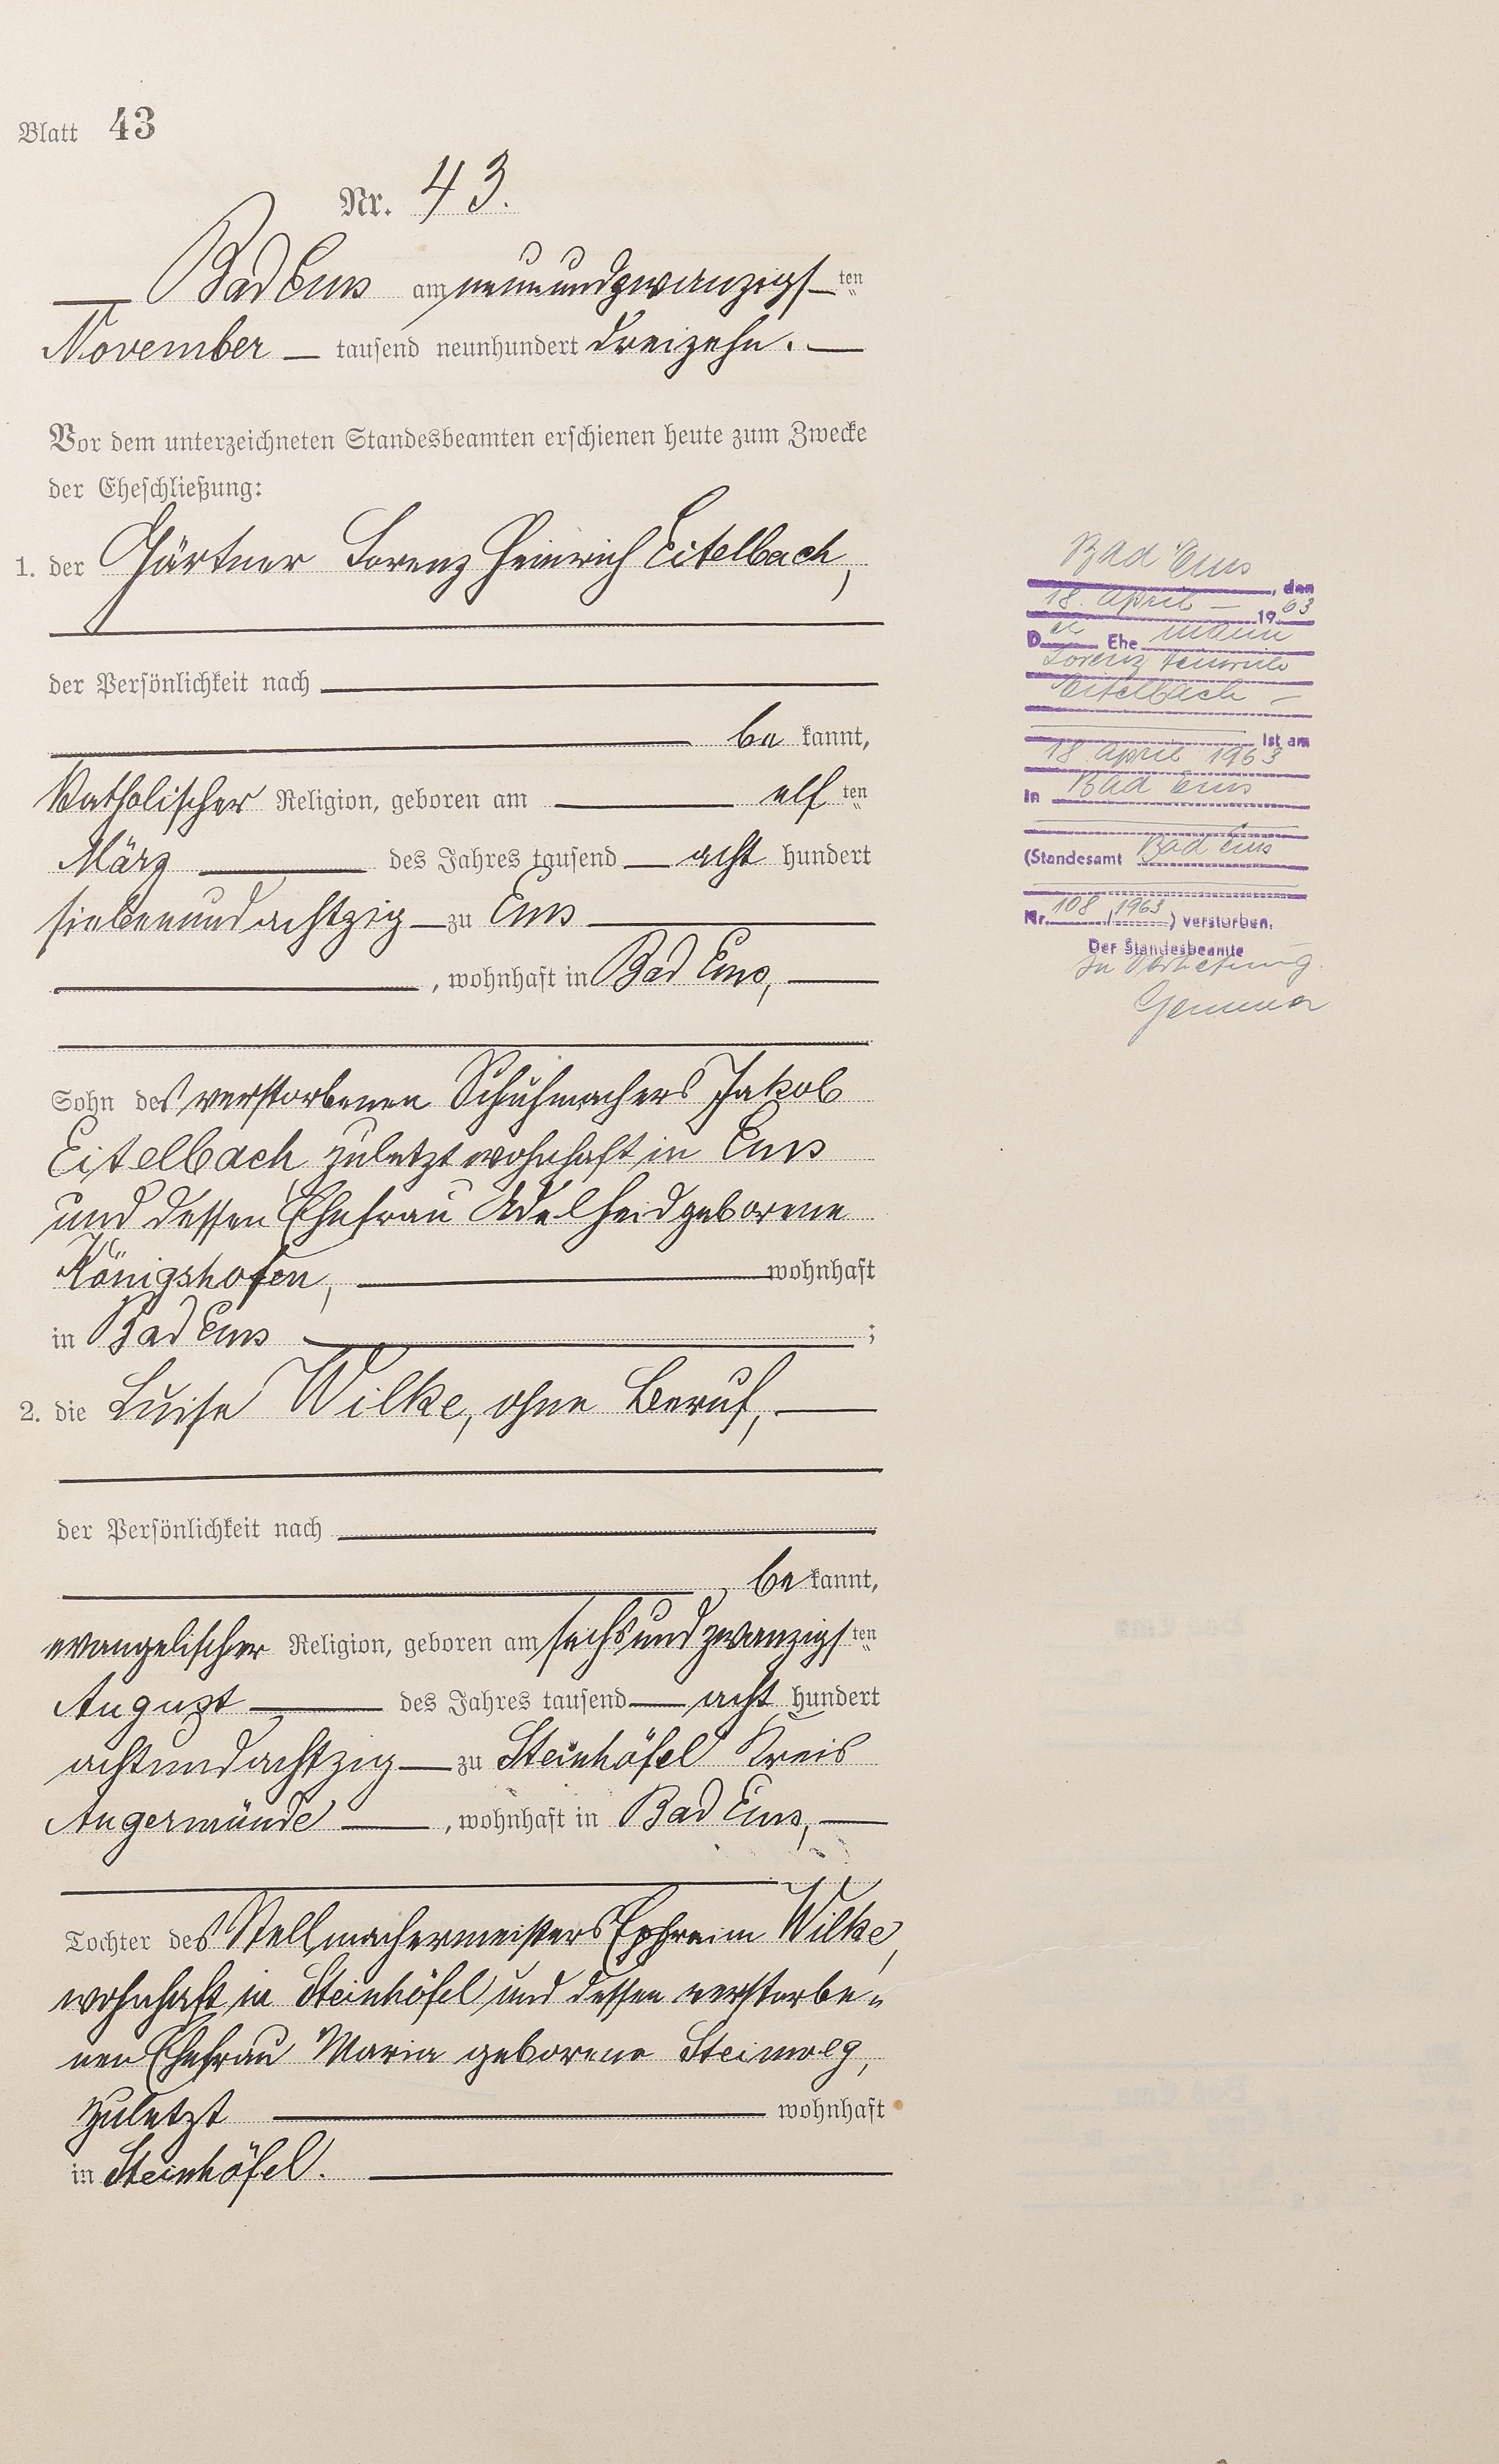 Blatt 43
Nr. 43.
Bad Ems am neunundzwanzigsten
November tausend neunhundert dreizehn.
Vor dem unterzeichneten Standesbeamten erschienen heute zum Zwecke
der Eheschließung:
1. der Gärtner Lorenz Heinrich Eitelbach,
der Persönlichkeit nach
bekannt,
katholischer Religion, geboren am elften
März des Jahres tausend acht hundert
siebenundachtzig zu Ems
, wohnhaft in Bad Ems,
Sohn des verstorbenen Schuhmachers Jakob
Eitelbach zuletzt wohnhaft in Ems
und dessen Ehefrau Adelheid geborene
Königshofen, wohnhaft
in Bad Ems ;
2. die Luise Wilke, ohne Beruf,
der Persönlichkeit nach
bekannt,
evangelischer Religion, geboren am sechsundzwanzigsten
August des Jahres tausend acht hundert
achtundachtzig zu Steinhöfel Kreis
Angermünde , wohnhaft in Bad Ems,
Tochter des Stellmachermeisters Ephraim Wilke,
wohnhaft in Steinhöfel und dessen verstorbe-
nen Ehefrau Maria geborene
zuletzt wohnhaft
in Steinhöfel.
Bad Ems
, den
18. April 1963
Der Ehemann
Lorenz Heinrich
Eitelbach
ist am
18. April 1963
in Bad Ems
(Standesamt Bad Ems
Nr. 108/1963) verstorben.
Der Standesbeamte
In Vertretung